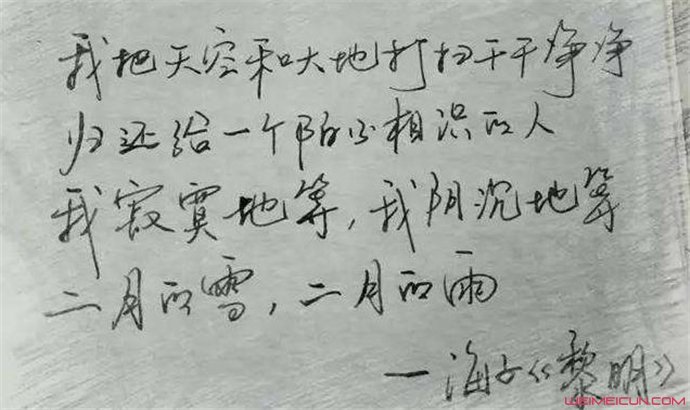 我把天空和大地打扫干干净净
归还给一个陌不相识的人
我寂寞地等，我阴沉地等
二月的雪，二月的雨
—海子《黎明》
WEIMEICUN.COM